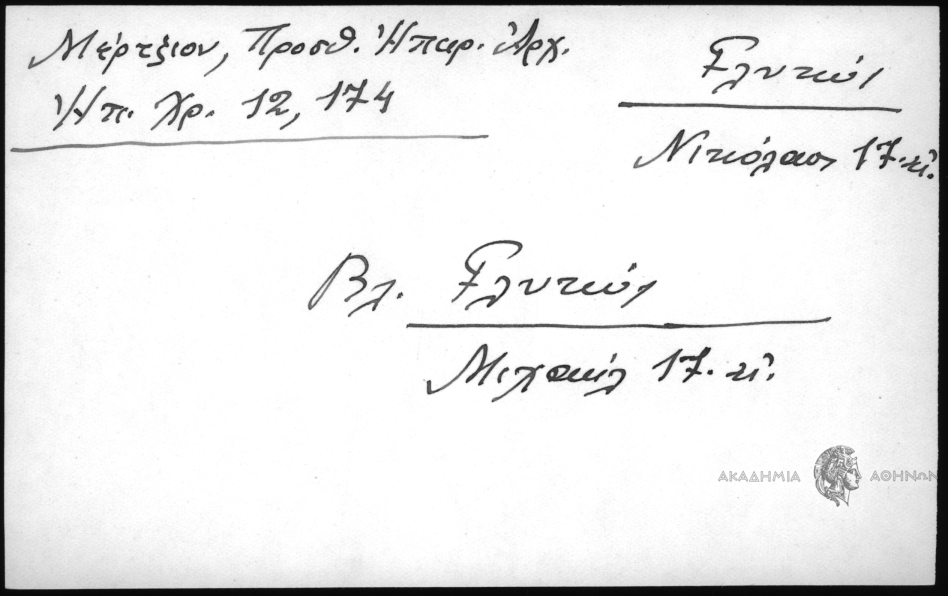 Μέρτζιον, Προσθ. Ἠπειρ. Ἀρχ.
Ἠπ. Χρ. 12, 174
Γλυκύς
Νικόλαος 17. αἰ.
Βλ. Γλυκύς
Μιχαὴλ 17. αἰ.
ΑΚΑΔΗΜΙΑ ΑΘΗΝΩΝ